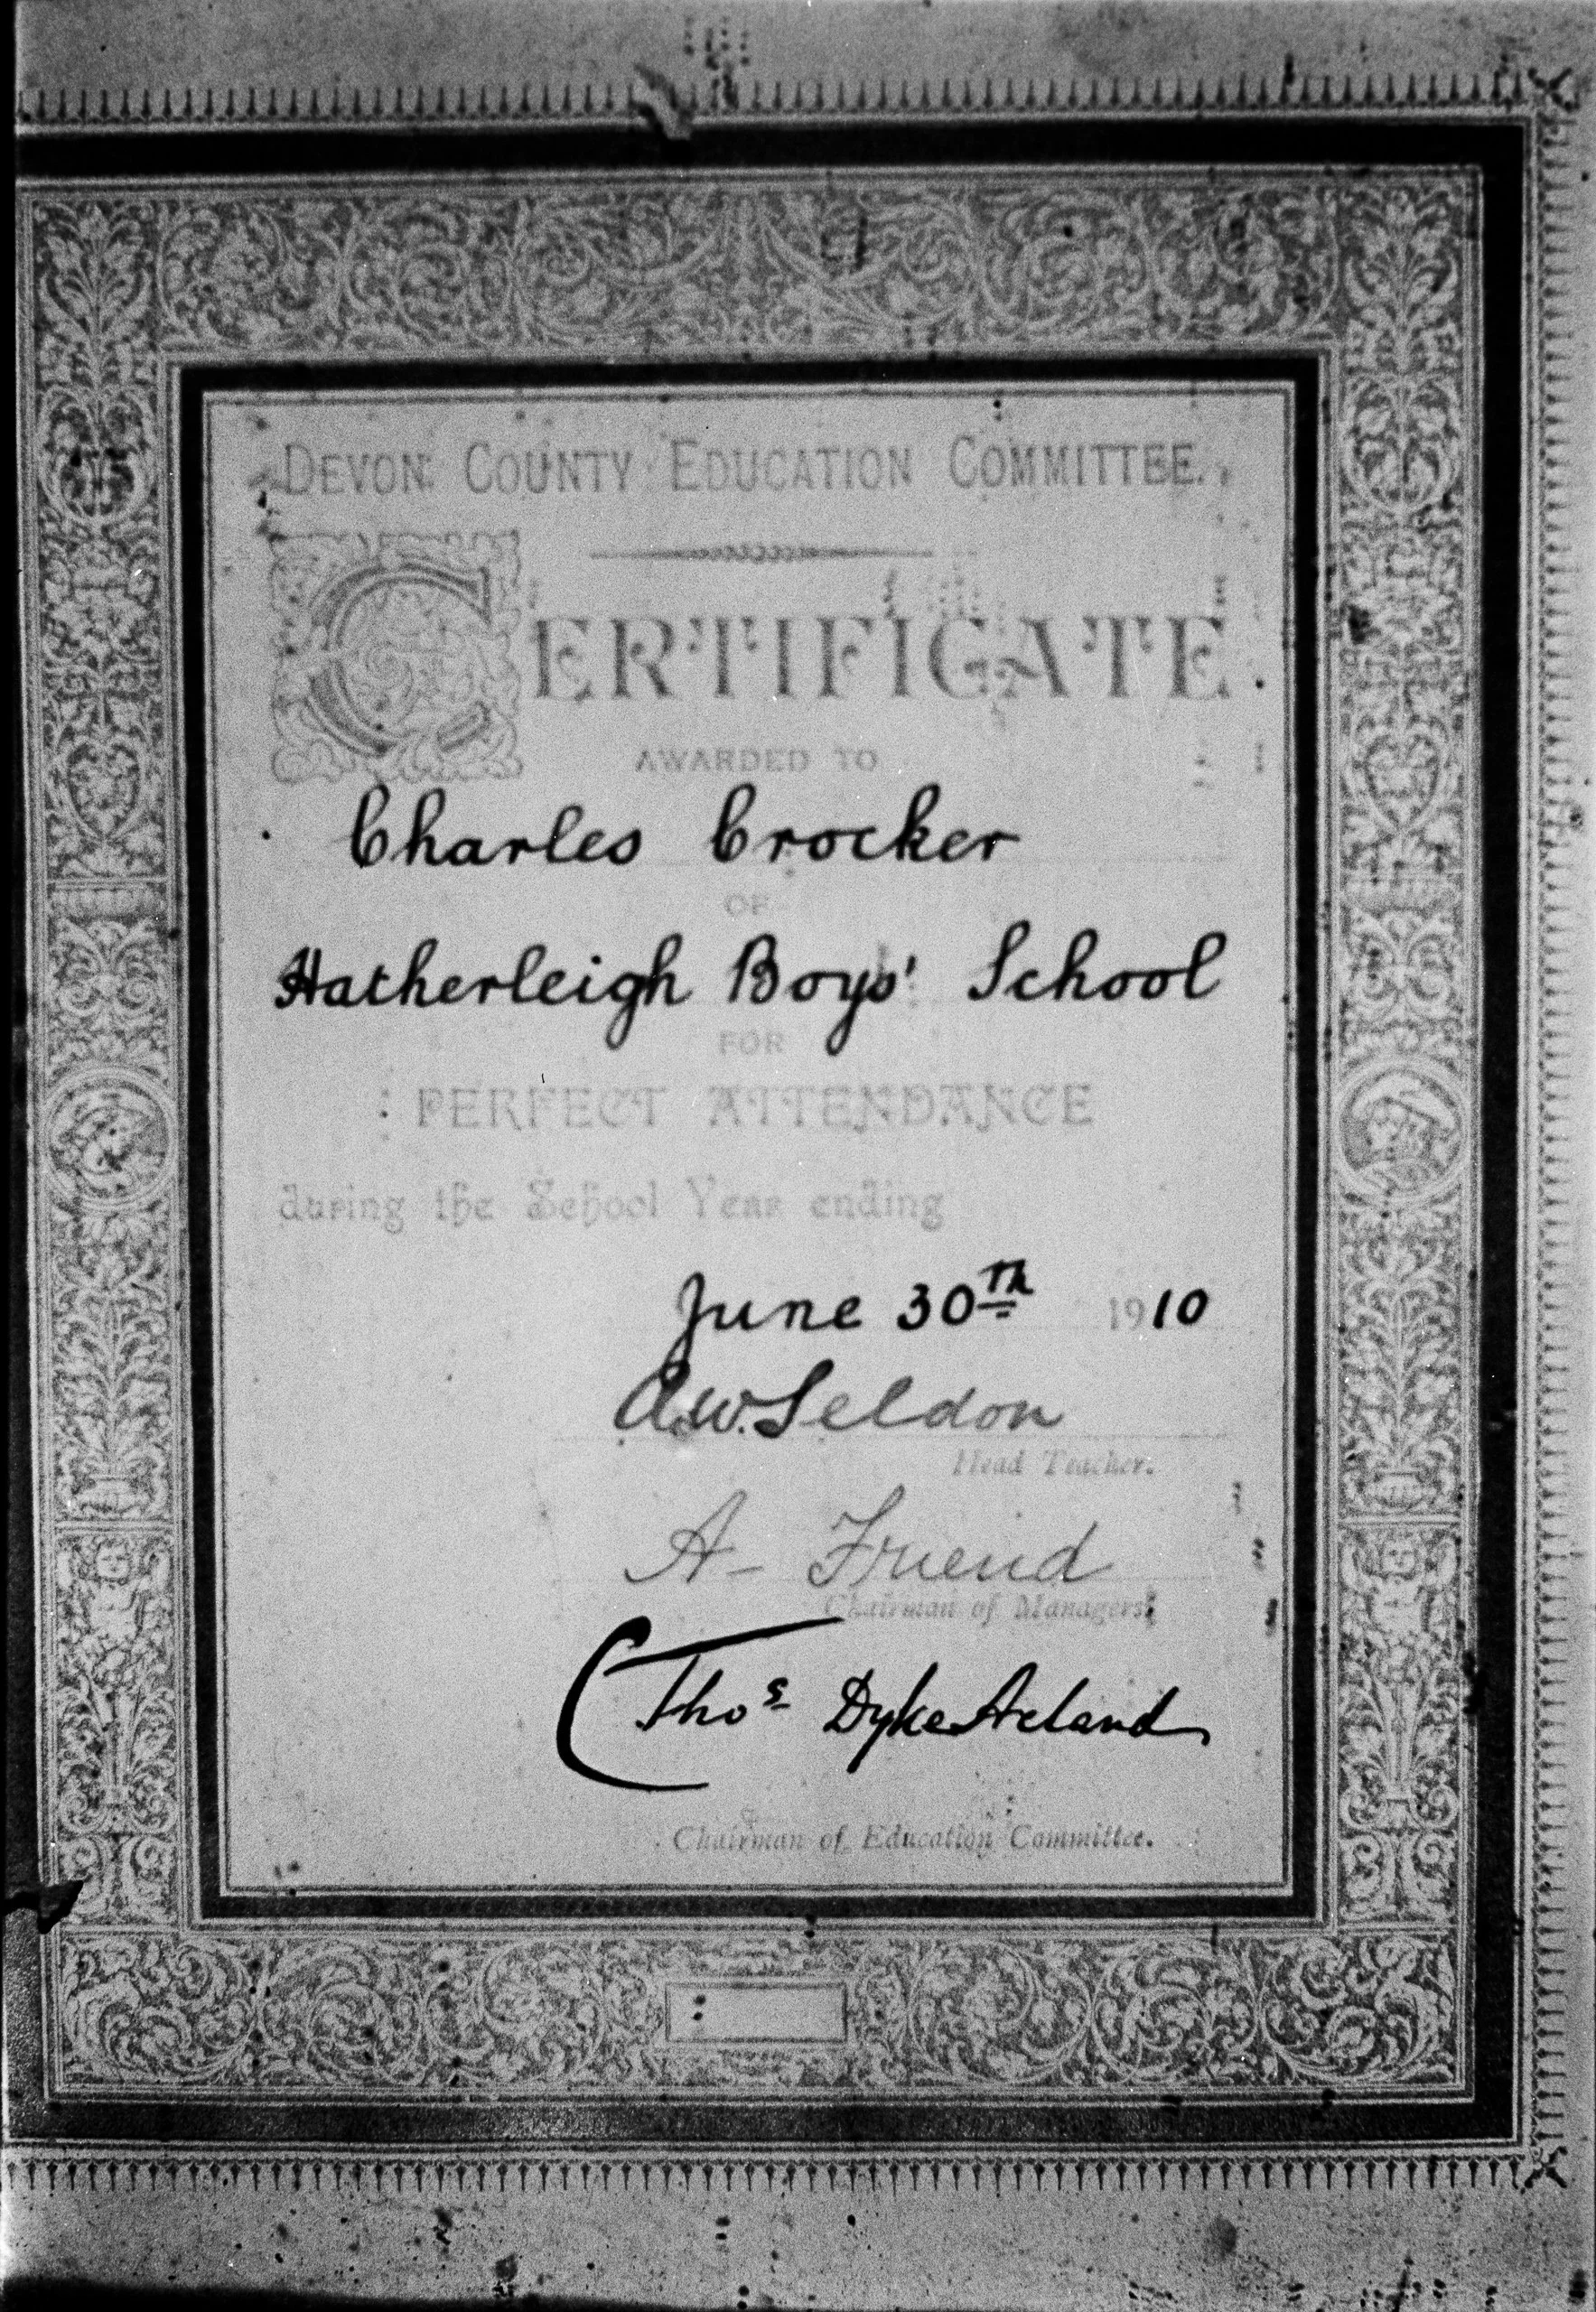 DEVON COUNTY EDUCATION COMMITTEE.
CERTIFICATE
AWARDED TO
Charles Crocker
OF
Hatherleigh Boys' School
FOR
PERFECT ATTENDANCE
during the School Year ending
June 30th 1910
A.W. Seldon
Head Teacher.
A- Friend
Chairman of Managers.
Thos Dyke Acland
Chairman of Education Committee.